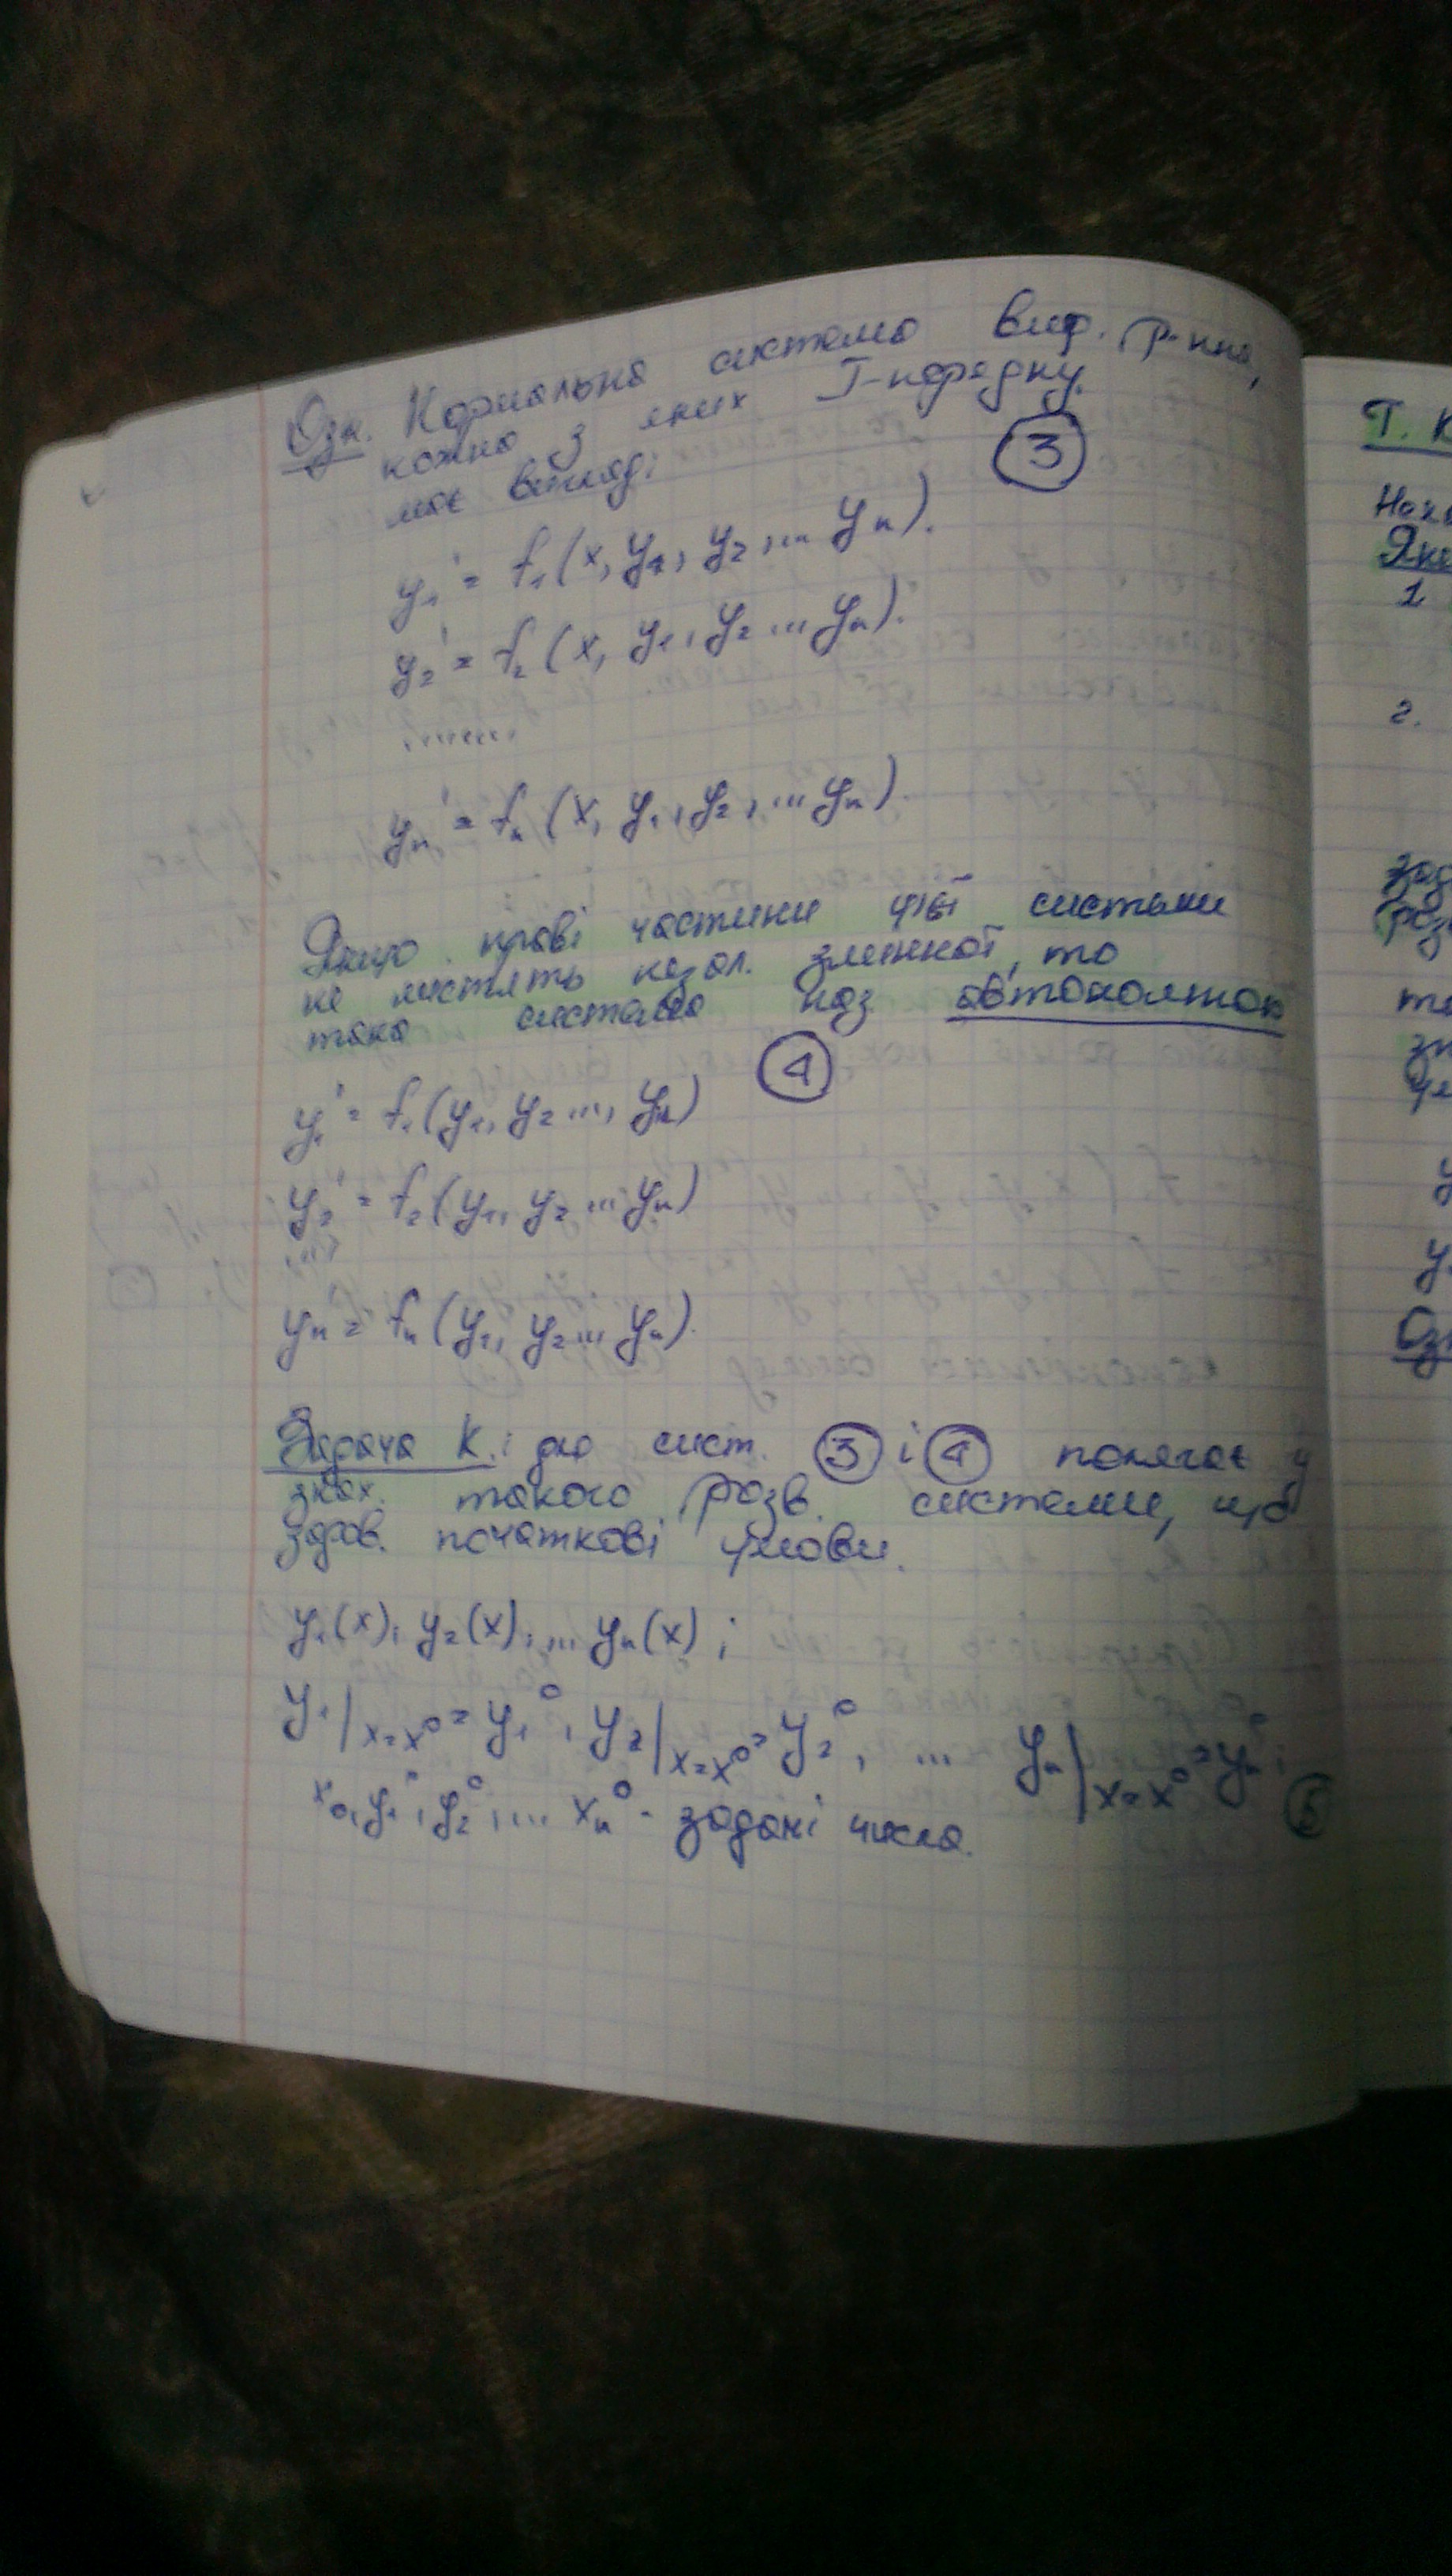 Озн. Нормальна система диф. р-ння,
кожна з яких I-порядку.
має вигляд:
③
y₁' = f₁(x, y₁, y₂, ... yₙ).
y₂' = f₂(x, y₁, y₂ ... yₙ).
.......
yₙ' = fₙ(x, y₁, y₂, ... yₙ).
Якщо праві частини цієї системи
не містять незал. змінної, то
така система наз автономною
④
y₁' = f₁(y₁, y₂ ..., yₙ)
y₂' = f₂(y₁, y₂ ... yₙ)
...
yₙ = fₙ(y₁, y₂ ... yₙ).
Задача К. до сист. ③ і ④ полягає у
знах. такого розв. системи, щоб
задов. початкові умови.
y₁(x), y₂(x), ... yₙ(x);
y₁|ₓ₌ₓ⁰ = y₁⁰, y₂|ₓ₌ₓ⁰ = y₂⁰, ... yₙ|ₓ₌ₓ⁰ = yₙ⁰;
x₀, y₁⁰, y₂⁰, ... xₙ⁰ - задані числа.
Т. К
Озн
1
2.